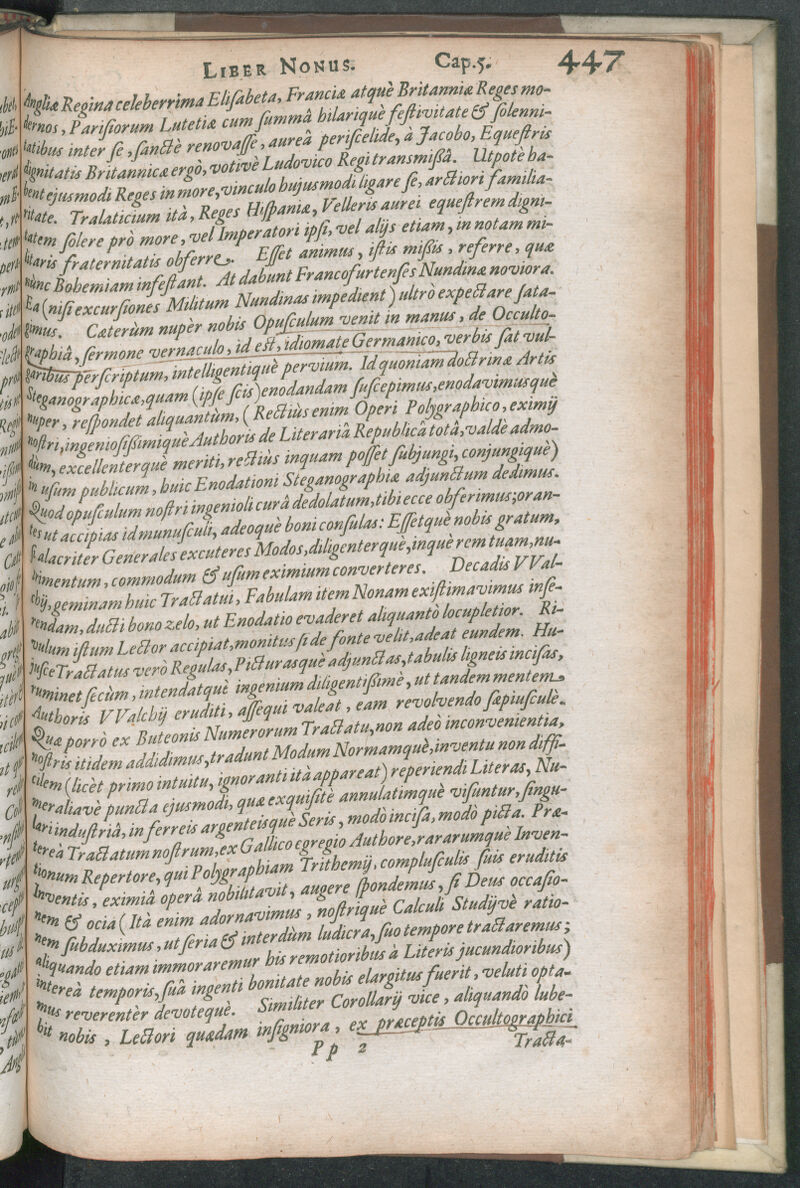 LIBER NONUS. Cap.5. 447
Angliæ Regina celeberrima Elisabeta, Franciæ atquè Britanniæ Reges mo-
dernos, Parisiorum Lutetiæ cum summâ hilariquè festivitate & solenni-
tatibus inter se, sanctè renovasse, aureâ periscelide, à Jacobo, Equestris
dignitatis Britannicæ ergò, votivè Ludovico Regi transmißâ. Utpotè ha-
bent ejusmodi Reges in more, vinculo hujusmodi ligare se, arctiori familia-
ritate. Tralaticium ità, Reges Hispaniæ, Velleris aurei equestrem digni-
tatem solere prò more, vel Imperatori ipsi, vel alijs etiam, in notam mi-
litaris fraternitatis obferre. Esset animus, istis mißis, referre, quæ
nùnc Bohemiam infestant. At dabunt Francofurtenses Nundinæ noviora.
Ea (nisi excursiones Militum Nundinas impedient) ultrò expectare sata-
gimus. Cæterùm nupèr nobis Opusculum venit in manus, de Occulto-
graphiâ, sermone vernaculo, id est, idiomate Germanico, verbis sat vul-
garibus perscriptum, intelligentiquè pervium. Id quoniam doctrinæ Artis
Steganographicæ, quam (ipse scis) enodandam suscepimus, enodavimusquè
nuper, respondet aliquantùm, (Rectiùs enim Operi Polygraphico, eximij
nostri, ingeniosißimiquè Authoris de Literariâ Republicâ totâ, valdè admo-
dùm, excellenterquè meriti, rectiùs inquam posset subjungi, conjungiquè)
in usum publicum, huic Enodationi Steganographiæ adjunctum dedimus.
Quod opusculum nostri ingenioli curâ dedolatum, tibi ecce obferimus; oran-
tes ut accipias id munusculi, adeoquè boni consulas: Essetquè nobis gratum,
si alacriter Generales excuteres Modos, diligenterquè, inquè rem tuam, nu-
trimentum, commodum & usum eximium converteres. Decadis VVal-
chij, geminam huic Tractatui, Fabulam item Nonam existimavimus inse-
rendam, ducti bono zelo, ut Enodatio evaderet aliquantò locupletior. Ri-
vulum istum Lector accipiat, monitus si de fonte velit, adeat eundem. Hu-
jusce Tractatus verò Regulas, Picturasquè adjunctas, tabulis ligneis incisas,
ruminet secùm, intendatquè ingenium diligentißimè, ut tandem mentem
Authoris VValchij eruditi, assequi valeat, eam revolvendo sæpiusculè.
Quæ porrò ex Buteonis Numerorum Tractatu, non adeò inconvenientia,
nostris itidem addidimus, tradunt Modum Normamquè, inventu non diffi-
cilem (licèt primo intuitu, ignoranti ità appareat) reperiendi Literas, Nu-
meraliavè puncta ejusmodi, quæ exquisitè annulatimquè visuntur, singu-
lari industriâ, in ferreis argenteisquè Seris, modò incisa, modò picta. Præ-
tereà Tractatum nostrum, ex Gallico egregio Authore, rararumquè Inven-
tionum Repertore, qui Polygraphiam Trithemij, complusculis suis eruditis
Inventis, eximiâ operâ nobilitavit, augere spondemus, si Deus occasio-
nem & ocia (Ità enim adornavimus, nostriquè Calculi Studijvè ratio-
nem subduximus, ut seria & interdùm ludicra, suo tempore tractaremus;
aliquando etiam immoraremur his remotioribus à Literis jucundioribus)
intereà temporis, suâ ingenti bonitate nobis elargitus fuerit, veluti opta-
mus reverentèr devotequè. Similiter Corollarij vice, aliquandò lube-
bit nobis, Lectori quædam insigniora, ex præceptis Occultographici
Pp 2 Tracta-